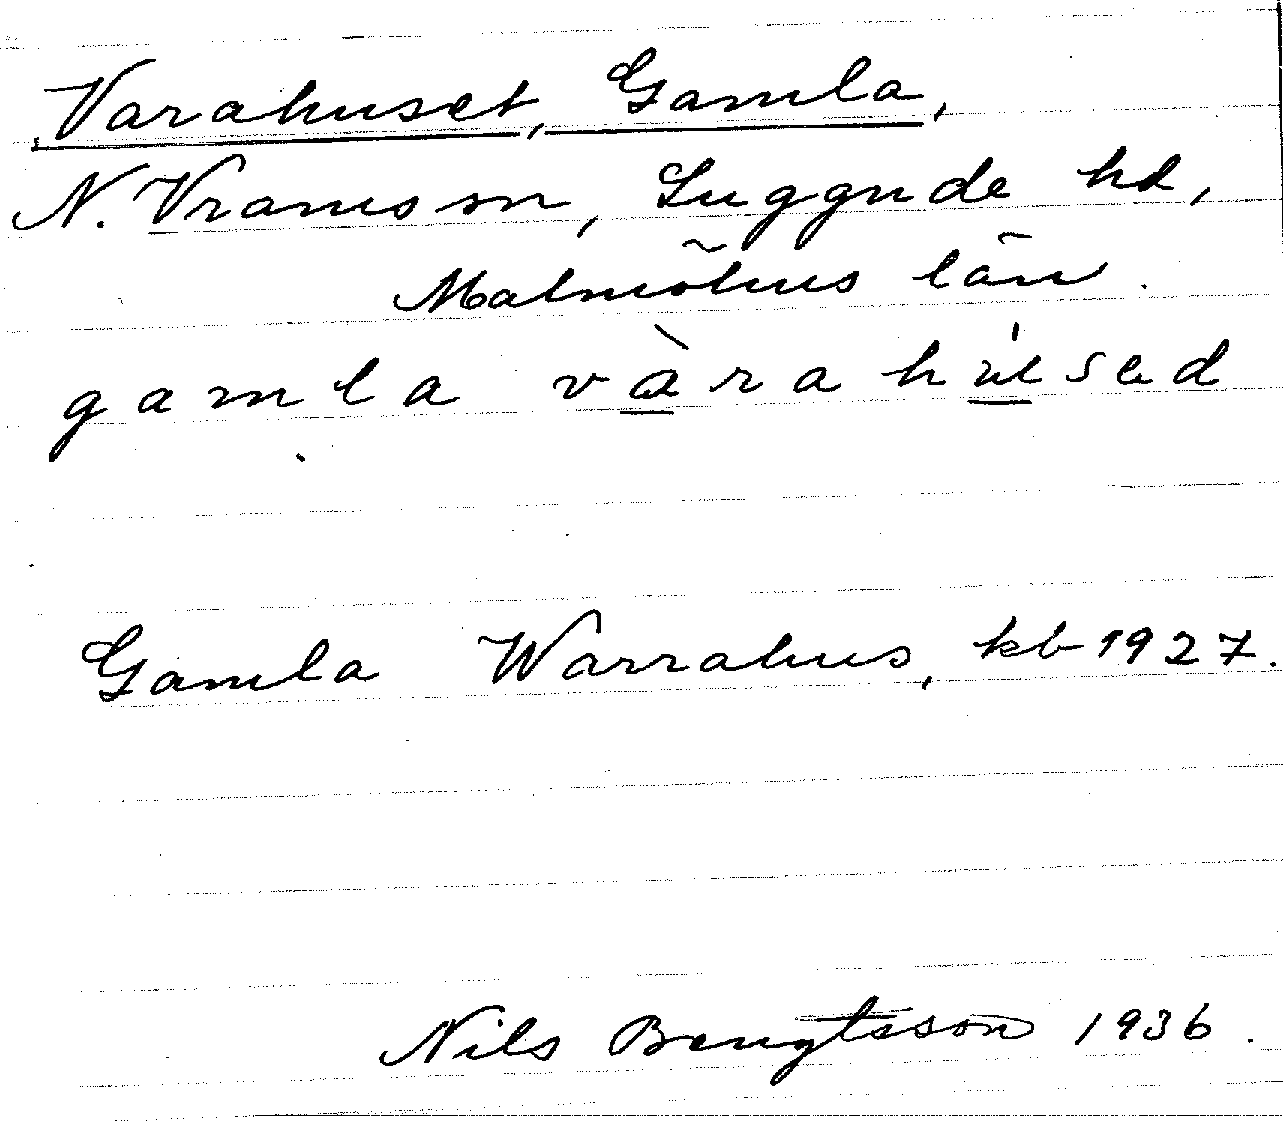 Varahuset, Gamla,
N. Vrams sn, Luggude hd,
Malmöhus län.
gamla vàrahúsed
Gamla Warrahus, kb 1927.
Nils Bengtsson 1936.